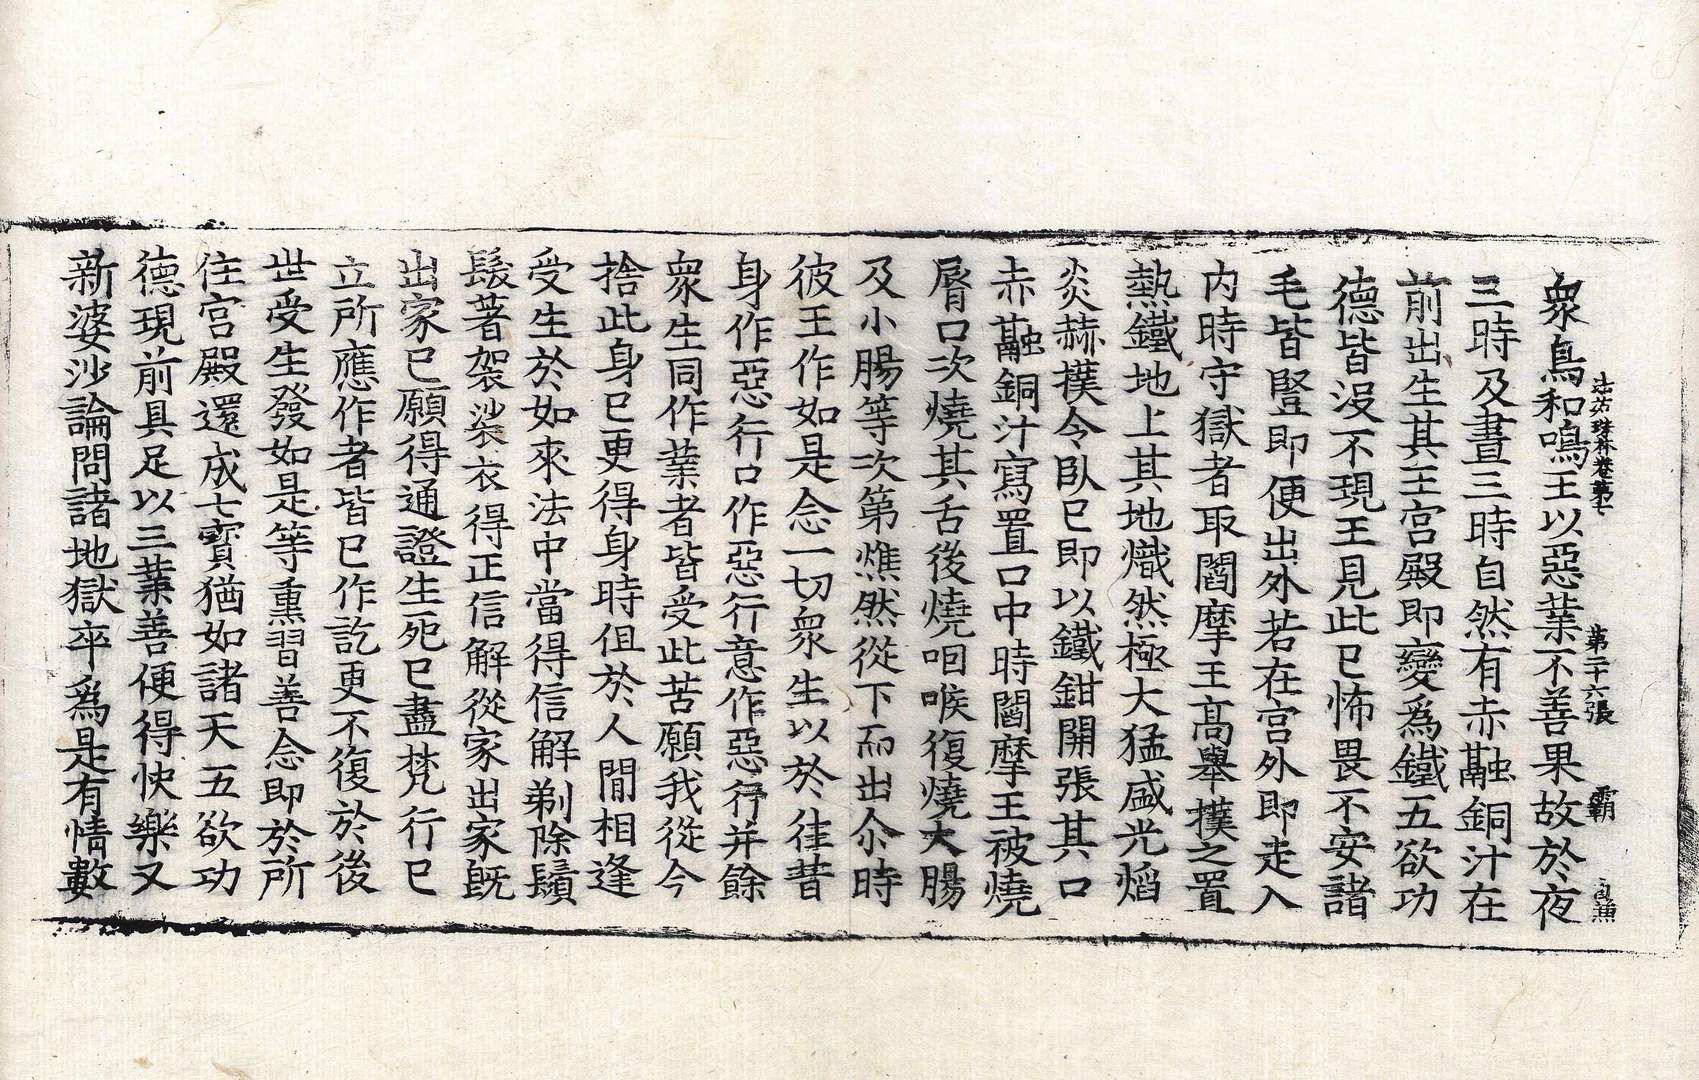 法苑珠林卷第七 第二十六張 覇
衆鳥和鳴王以惡業不善果故於夜
三時及晝三時自然有赤融銅汁在
前出生其王宮殿即變爲鐵五欲功
德皆沒不現王見此已怖畏不安諸
毛皆豎即便出外若在宮外即走入
內時守獄者取閻摩王高舉撲之置
熱鐵地上其地熾然極大猛盛光焰
炎赫撲令臥已即以鐵鉗開張其口
赤融銅汁寫置口中時閻摩王被燒
脣口次燒其舌後燒咽喉復燒大腸
及小腸等次第燋然從下而出尒時
彼王作如是念一切衆生以於徃昔
身作惡行口作惡行意作惡行并餘
衆生同作業者皆受此苦願我從今
捨此身已更得身時伹於人閒相逢
受生於如來法中當得信解剃除鬚
髮著袈裟衣得正信解從家出家旣
出家已願得通證生死已盡梵行已
立所應作者皆已作訖更不復於後
世受生發如是等熏習善念即於所
住宮殿還成七寶猶如諸天五欲功
德現前具足以三業善便得快樂又
新婆沙論問諸地獄卒爲是有情數